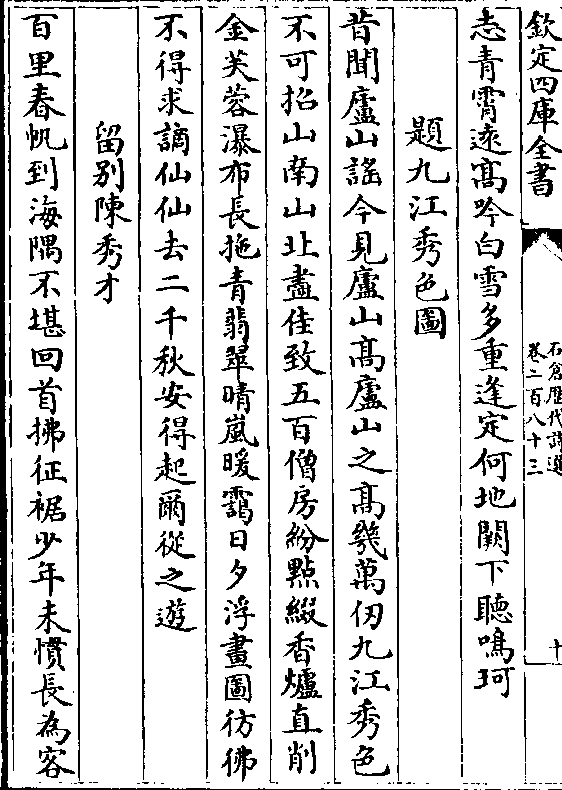 欽定四庫全書
石倉歷代詩選
卷二百八十三
十
志青霄遠髙吟白雪多重逢定何地闕下聽鳴珂
題九江秀色圖
昔聞廬山謡今見廬山髙廬山之髙幾萬仞九江秀色
不可招山南山北盡佳致五百僧房紛點綴香爐直削
金芙蓉瀑布長拖青翡翠晴嵐暖靄日夕浮畫圖彷彿
不得求謫仙仙去二千秋安得起爾從之遊
留别陳秀才
百里春帆到海隅不堪回首拂征裾少年未慣長為客